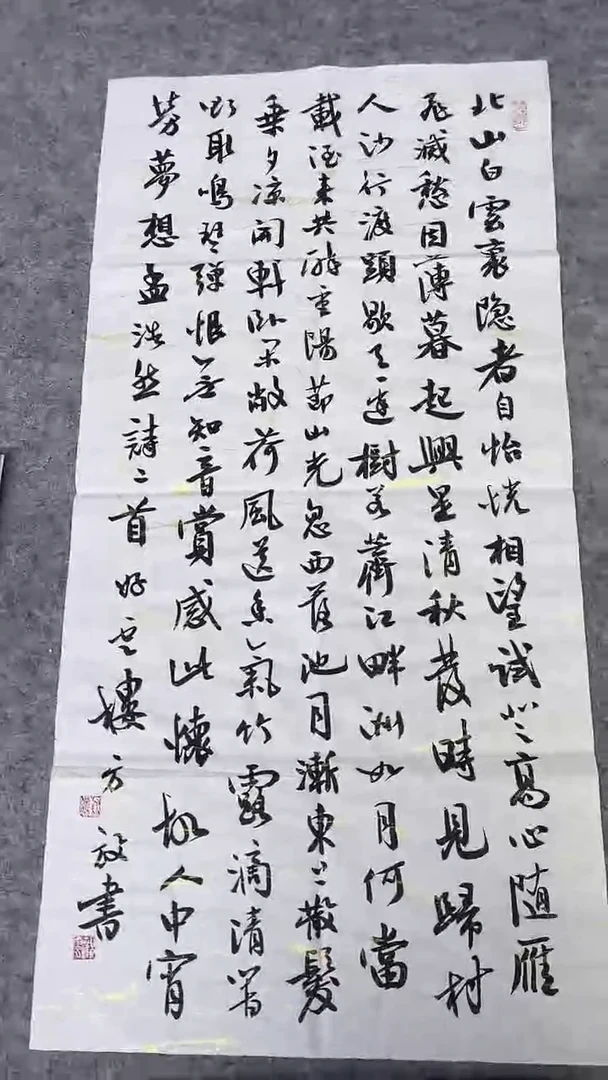 北山白雲裏隐者自怡悦相望試登高心随雁
飛滅愁因薄暮起興是清秋發時見歸村
人沙行渡頭歇天邊樹若薺江畔洲如月何當
載酒来共醉重陽節山光忽西落池月漸東上散髮
乗夕凉開軒卧闲敞荷風送香氣竹露滴清響
欲取鳴琴弹恨無知音賞感此懷故人中宵
劳夢想孟浩然詩二首 好雲樓方書